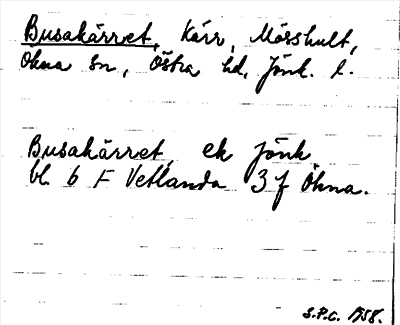 Busakärret, Kärr, Mösshult,
Ökna sn, Östra hd, Jönk. l.
Busakärret, ek Jönk.
bl. 6 F Vetlanda 3 f Ökna.
S.P.C. 1958.